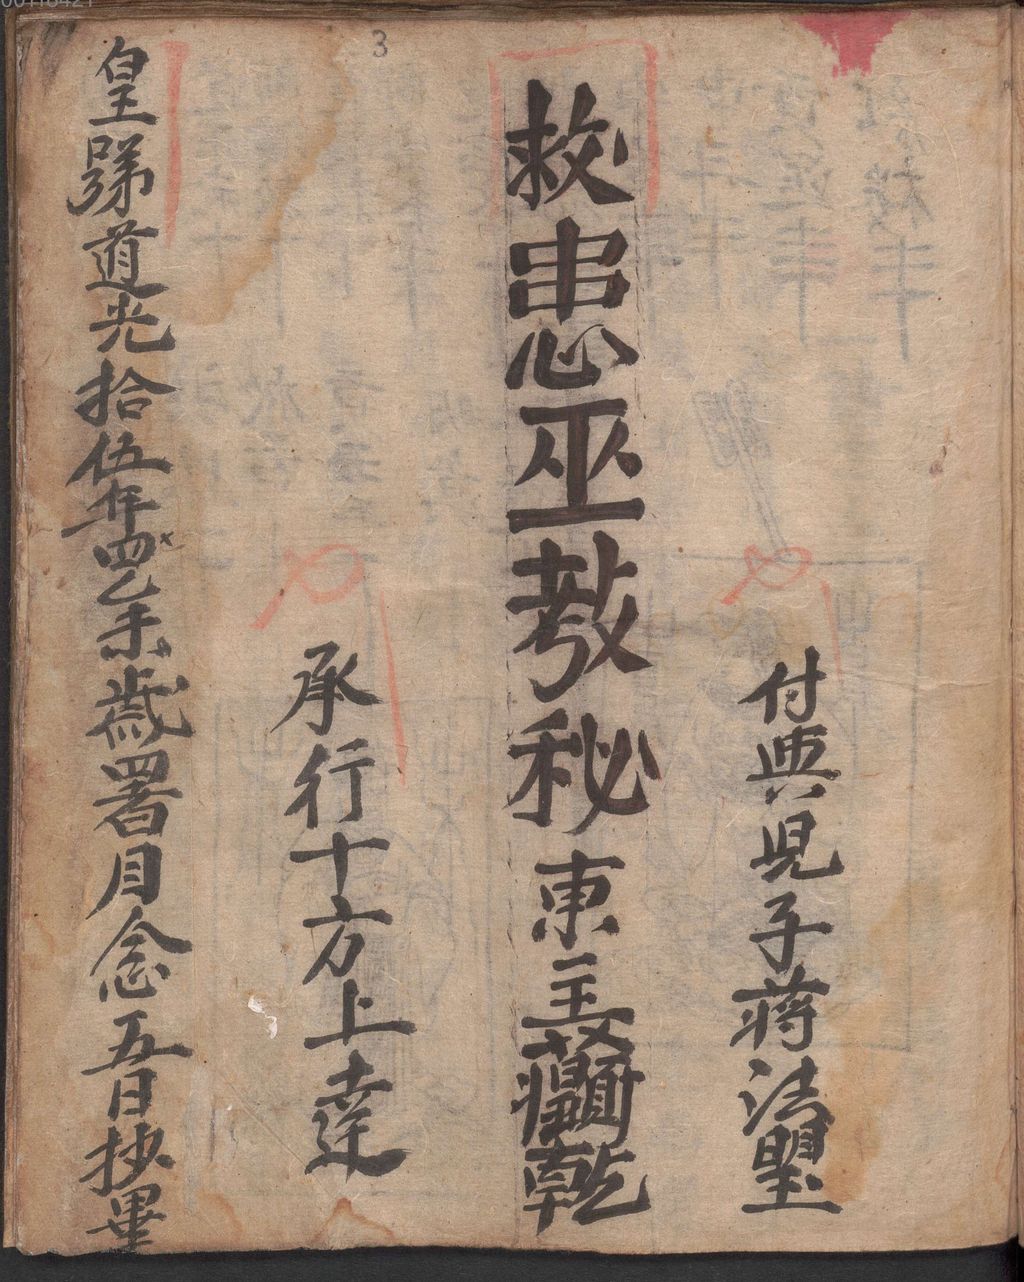 付與兒子蔣法
救患巫教秘東主
承行十方上達
皇道光拾伍年乙未歲署月念五日抄畢
3